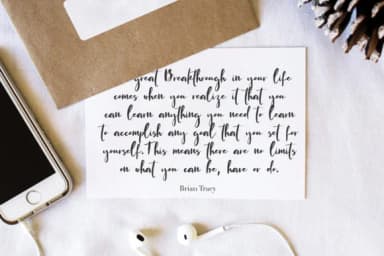 great Breakthrough in your life
comes when you realize it that you
can learn anything you need to learn
to accomplish any goal that you set for
yourself. This means there are no limits
on what you can be, have or do.
Brian Tracy